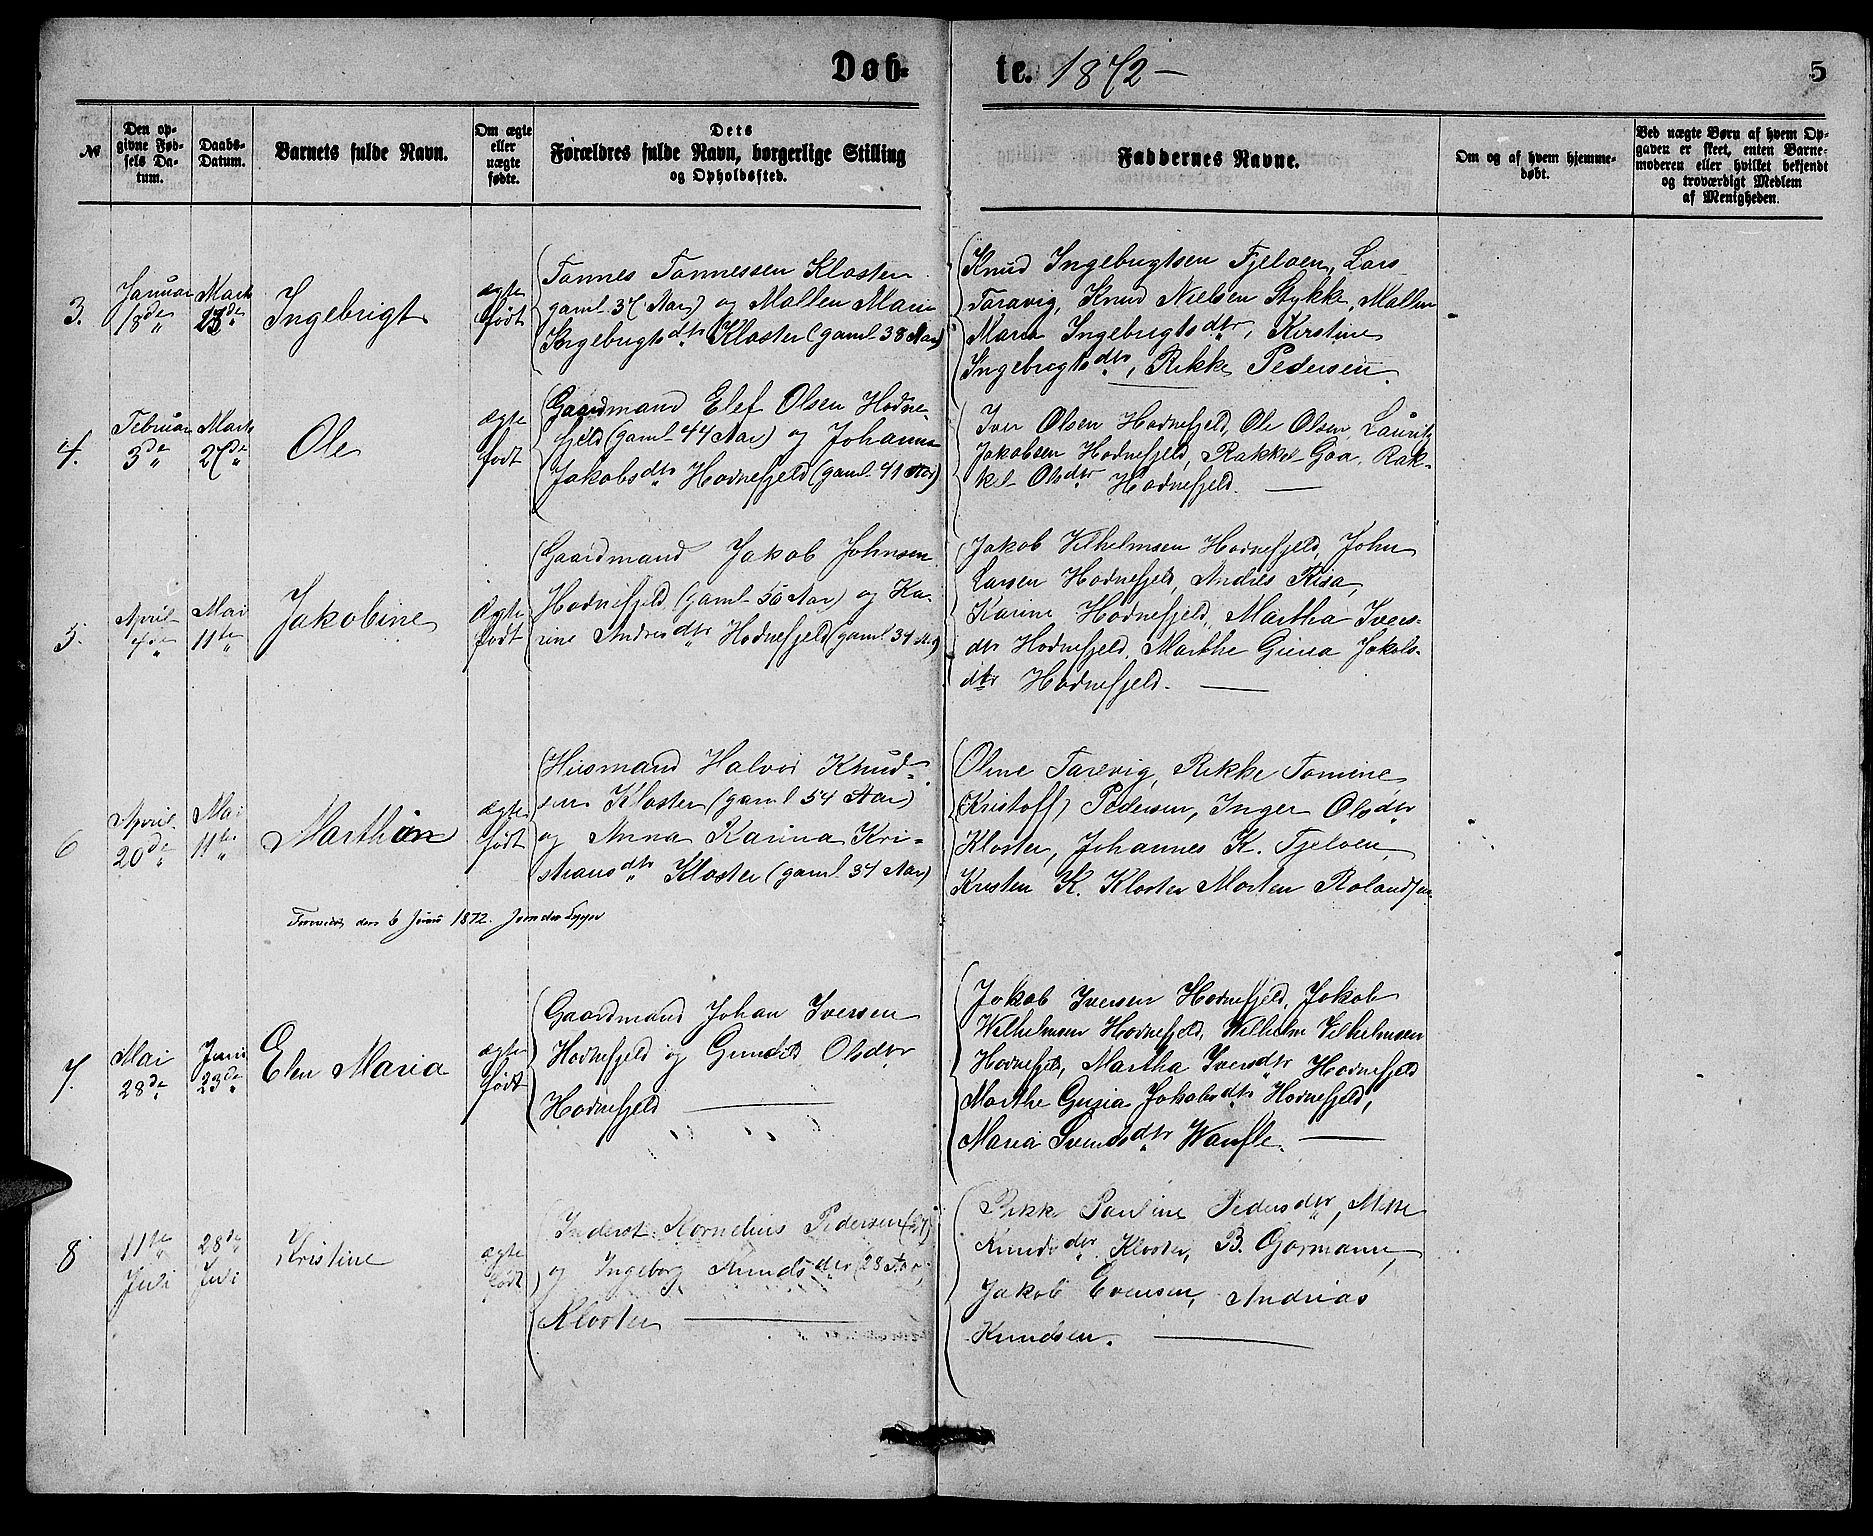 Døb- te. 1872 — 5
№
Den opgivne Fødsels Datum.
Daabs-Datum.
Barnets fulde Navn.
Om ægte eller uægte fødte.
Dets Forældres fulde Navn, borgerlige Stilling og Opholdssted.
Faddernes Navne.
Om og af hvem hjemmedøbt.
Ved uægte Børn af hvem Opgaven er skeet, enten Barnemoderen eller hvilket bekjendt og troværdigt Medlem af Menigheden.
3.
Januar 18de
Marts
Ingebrigt
ægte født
Tønnes Tønnessen Kloster
(gaml 37 Aar) og Mallen Marie
Ingebrigtsdtr Kloster (gaml 38 Aar)
Knud Ingebrigtsen Fjeløen, Lars
Taravig, Knud Nielsen Stykke, Mallen
Maria Ingebrigtsdtr, Kirstine
Ingebrigtsdtr, Rikke Pedersen.
4.
Februar 3de
Marts 27de
Ole
ægte født
Gaardmand Elef Olsen Hodne-
fjeld (gaml 44 Aar) og Johanna
Jakobsdtr Hodnefjeld (gaml 41 Aar)
Iver Olsen Hodnefjeld, Ole Olsen, Lauritz
Jakobsen Hodnefjeld, Rakkel Goa, Rak-
kel Olsdtr Hodnefjeld. —
5.
April 4de
Mai 11te
Jakobine
Ægte født
Gaardmand Jakob Johnsen
Hodnefjeld (gaml 50 Aar) og Ka-
rine Andresdtr Hodnefjeld (gaml 34 Aar)
Jakob Vilhelmsen Hodnefjeld, John
Larsen Hodnefjeld, Andres Risa,
Karine Hodnefjeld, Martha Ivers-
dtr Hodnefjeld, Marthe Guria Jakobs-
dtr Hodnefjeld. —
6
April 20de
Mai 11te
Marthin
ægte født
Husmand Halvor Knud-
sen Kloster (gaml 54 Aar)
og Anna Karina Kri-
stiansdtr Kloster (gaml 34 Aar)
Oline Tarevig, Rikke Tomine
(Kristoff) Pedersen, Inger Olsdtr
Kloster, Johannes K. Fjeløen,
Kristen K. Kloster Morten Rolandsen
den 6 Juni 1872.
7.
Mai 28de
Juni 23de
Elen Maria
ægte født
Gaardmand Johan Iversen
Hodnefjeld og Gunild Olsdtr
Hodnefjeld —
Jakob Iversen Hodnefjeld, Jakob
Wilhelmsen Hodnefjeld, Wilhelm Vilhelmsen
Hodnefjeld, Martha Iversdtr Hodnefjeld
Marthe Guria Jakobsdtr Hodnefjeld,
Maria Svendsdtr —
8
11te Juli
28de Juli
Kristine
ægte født
Inderst Kornelius Pedersen (27)
og Ingeborg Knudsdtr (28 Aar)
Kloster —
Rikke Pauline Pedersdtr, Mette
Knudsdtr Kloster, B. Gormann,
Jakob Evensen, Andreas
Knudsen. —